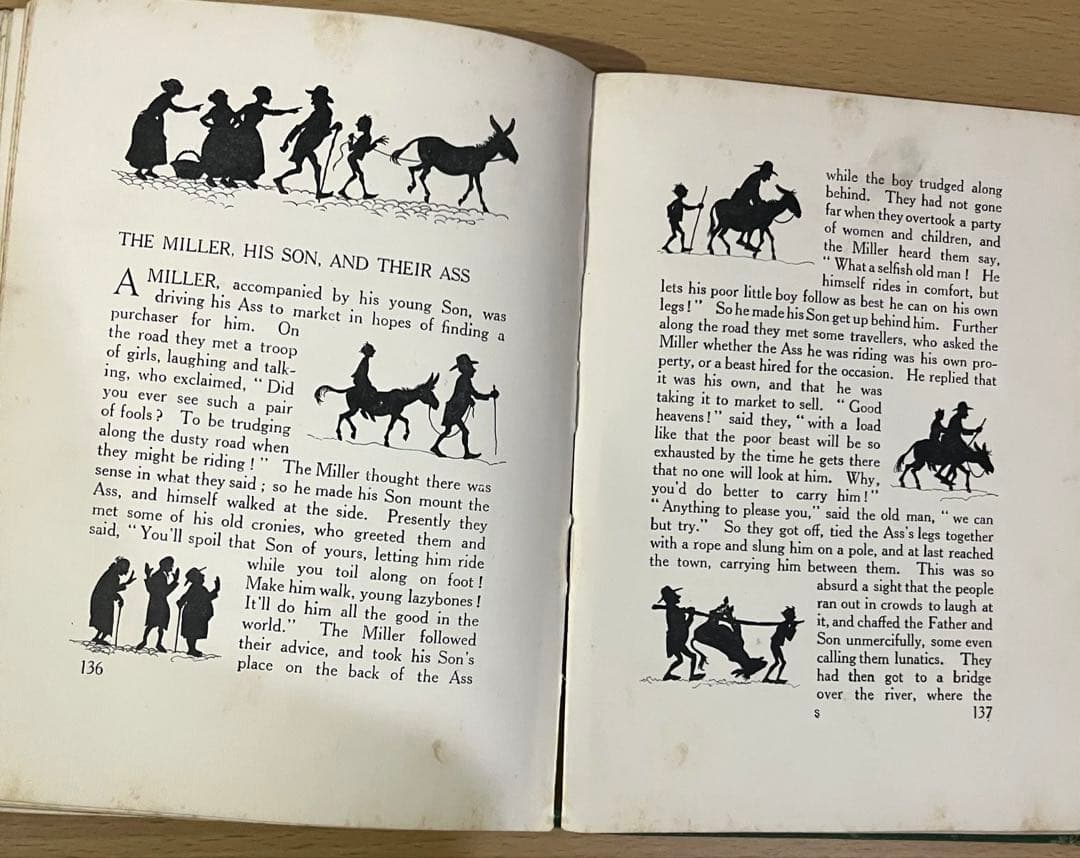 THE MILLER, HIS SON, AND THEIR ASS
A MILLER, accompanied by his young Son, was
driving his Ass to market in hopes of finding a
purchaser for him. On
the road they met a troop
of girls, laughing and talk-
ing, who exclaimed, “ Did
you ever see such a pair
of fools ? To be trudging
along the dusty road when
they might be riding ! ” The Miller thought there was
sense in what they said ; so he made his Son mount the
Ass, and himself walked at the side. Presently they
met some of his old cronies, who greeted them and
said, “ You'll spoil that Son of yours, letting him ride
while you toil along on foot !
Make him walk, young lazybones !
It'll do him all the good in the
world.” The Miller followed
their advice, and took his Son's
place on the back of the Ass
136
while the boy trudged along
behind. They had not gone
far when they overtook a party
of women and children, and
the Miller heard them say,
“ What a selfish old man ! He
himself rides in comfort, but
lets his poor little boy follow as best he can on his own
legs ! ” So he made his Son get up behind him. Further
along the road they met some travellers, who asked the
Miller whether the Ass he was riding was his own pro-
perty, or a beast hired for the occasion. He replied that
it was his own, and that he was
taking it to market to sell. “ Good
heavens ! ” said they, “ with a load
like that the poor beast will be so
exhausted by the time he gets there
that no one will look at him. Why,
you'd do better to carry him ! ”
“ Anything to please you,” said the old man, “ we can
but try.” So they got off, tied the Ass's legs together
with a rope and slung him on a pole, and at last reached
the town, carrying him between them. This was so
absurd a sight that the people
ran out in crowds to laugh at
it, and chaffed the Father and
Son unmercifully, some even
calling them lunatics. They
had then got to a bridge
over the river, where the
S 137